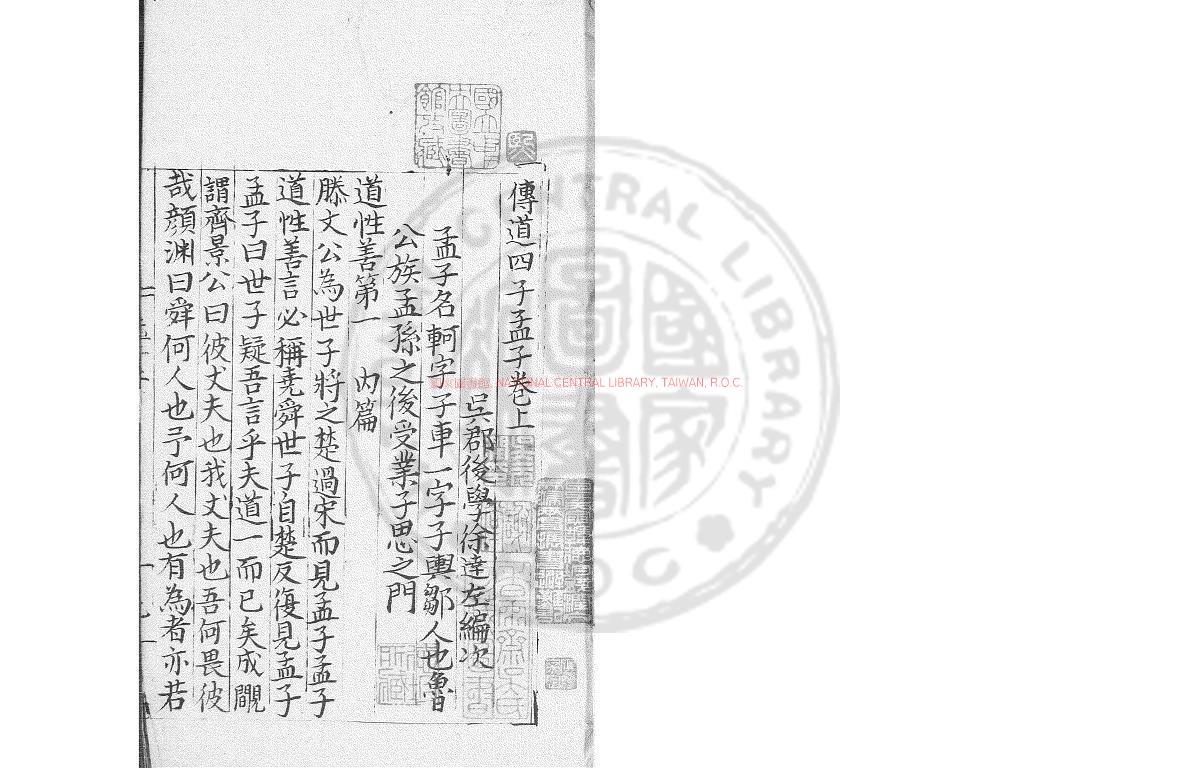 傳道四子孟子卷上
吳郡後學徐達左編次
孟子名軻字子車一字子輿鄒人也魯
公族孟孫之後受業子思之門
道性善第一 內篇
滕文公為世子將之楚過宋而見孟子孟子
道性善言必稱堯舜世子自楚反復見孟子
孟子曰世子疑吾言乎夫道一而已矣成覵
謂齊景公曰彼丈夫也我丈夫也吾何畏彼
哉顏淵曰舜何人也予何人也有為者亦若
國立中
央圖書
館收藏
NATIONAL CENTRAL LIBRARY, TAIWAN, R.O.C.
CENTRAL LIBRARY
國家圖書